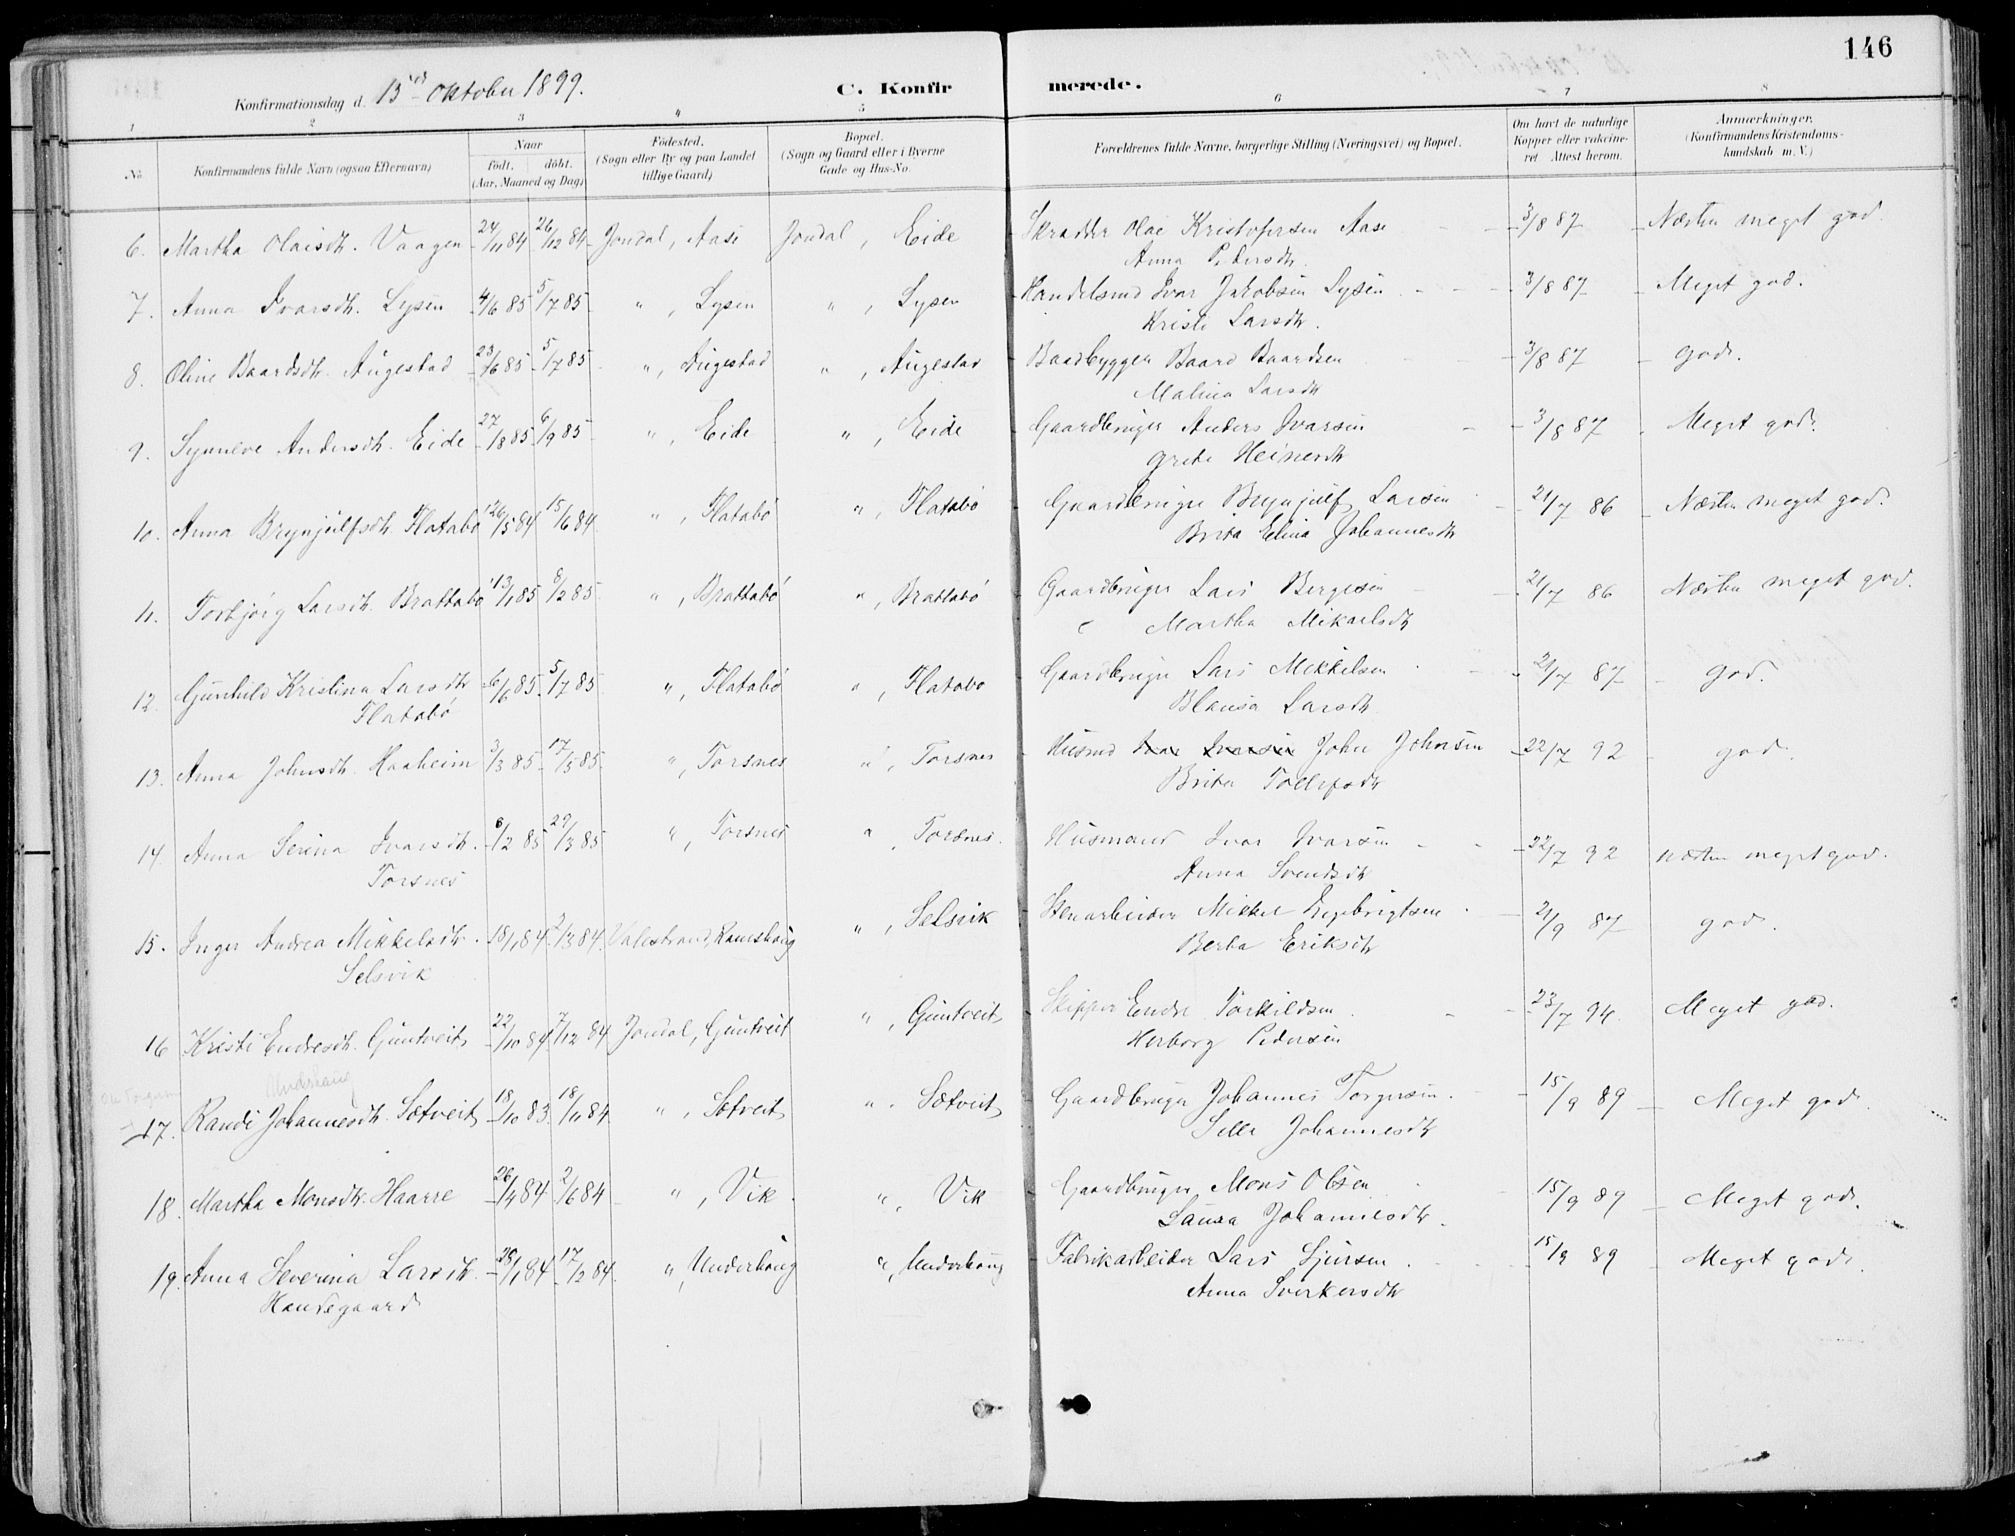 146
Konfirmationsdag d. 15de Oktober 1899.
C. Konfirmerede.
1 2 3 4 5 6 7 8
No
Konfirmandens fulde Navn (ogsaa Efternavn)
Naar
født. døbt.
(Aar, Maaned og Dag)
Fødested.
(Sogn eller By og paa Landet
tillige Gaard)
Bopæl.
(Sogn og Gaard eller i Byerne
Gade og Hus-No.
Forældrenes fulde Navne, borgerlige Stilling (Næringsvei) og Bopæl.
Om havt de naturlige
Kopper eller vakcine-
ret. Attest herom.
Anmærkninger.
(Konfirmandens Kristendoms-
kundskab m. V.)
6. Martha Olaisdtr. Vaagen 24/11 84 26/12 84 Jondal, Aase Jondal, Eide Skrædder Olai Kristofersen Aase 3/8 87 Næsten meget god.
Anna Pedersdtr.
7. Anna Ivarsdtr. Lysen 4/6 85 5/7 85 " , Lysen " , Lysen Handelsmd Ivar Jakobsen Lysen 3/8 87 Meget god.
Kristi Larsdtr.
8. Oline Baardsdtr. Augestad 23/6 85 5/7 85 " , Augestad " , Augestad Baadbygger Baard Baardsen 3/8 87 god.
Malina Larsdtr
9. Synneve Andersdtr. Eide 27/8 85 6/9 85 " , Eide " , Eide Gaardbruger Anders Ivarsen 3/8 87 Meget god.
Grete Heinesdtr
10. Anna Brynjulfsdtr. Flatabø 26/5 84 15/6 84 " , Flatabø " , Flatabø Gaardbruger Brynjulf Larsen 21/7 86 Næsten meget god.
Brita Elina Johannesdtr
11. Torbjørg Larsdtr. Brattabø 13/1 85 8/2 85 " , Brattabø " , Brattabø Gaardbruger Lars Bergesen 21/7 86 Næsten meget god.
Martha Mikaelsdtr
12. Gunhild Kristina Larsdtr 6/6 85 5/7 85 " , Flatabø " , Flatabø Gaardbruger Lars Mikkelsen 21/7 87 god.
Flatabø Blansa Larsdtr
13. Anna Johnsdtr. Haaheim 3/3 85 17/5 85 " , Torsnes " , Torsnes Husmd Ivar Ivarsen John Johnsen 22/7 92 god.
Brita Tollefsdtr
14. Anna Serina Ivarsdtr. 6/2 85 29/3 85 " , Torsnes " , Torsnes. Husmand Ivar Ivarsen 22/7 92 Næsten meget god.
Torsnes Anna Svendsdtr
15. Inger Andrea Mikkelsdtr. 18/1 84 2/3 84 Valestrand, Ramshaug " , Selsvik Stenarbeider Mikkel Engebrigtsen 21/9 87 god.
Selsvik Berta Eriksdtr
16 Kristi Endresdtr. Guntveit 22/10 84 7/12 84 Jondal, Guntveit " , Guntveit Skipper Endre Torkildsen 23/7 94 Meget god.
Herborg Pedersen
Underhaug
17. Randi Johannesdtr. Sætveit 18/10 83 18/11 84 " , Sætveit " , Sætveit Gaardbruger Johannes Torgersen 15/9 89 Meget god.
Sella Johannesdtr
18. Martha Monsdtr. Haarre 26/4 84 2/6 84 " , Vik " , Vik Gaardbruger Mons Olsen 15/9 89 Meget god.
Sausa Johannesdtr.
19. Anna Severina Larsdtr 28/1 84 17/2 84 " , Underhaug " , Underhaug Fabrikarbeider Lars Sjursen 15/9 89 Meget god.
Handegaard Anna Sverkersdtr